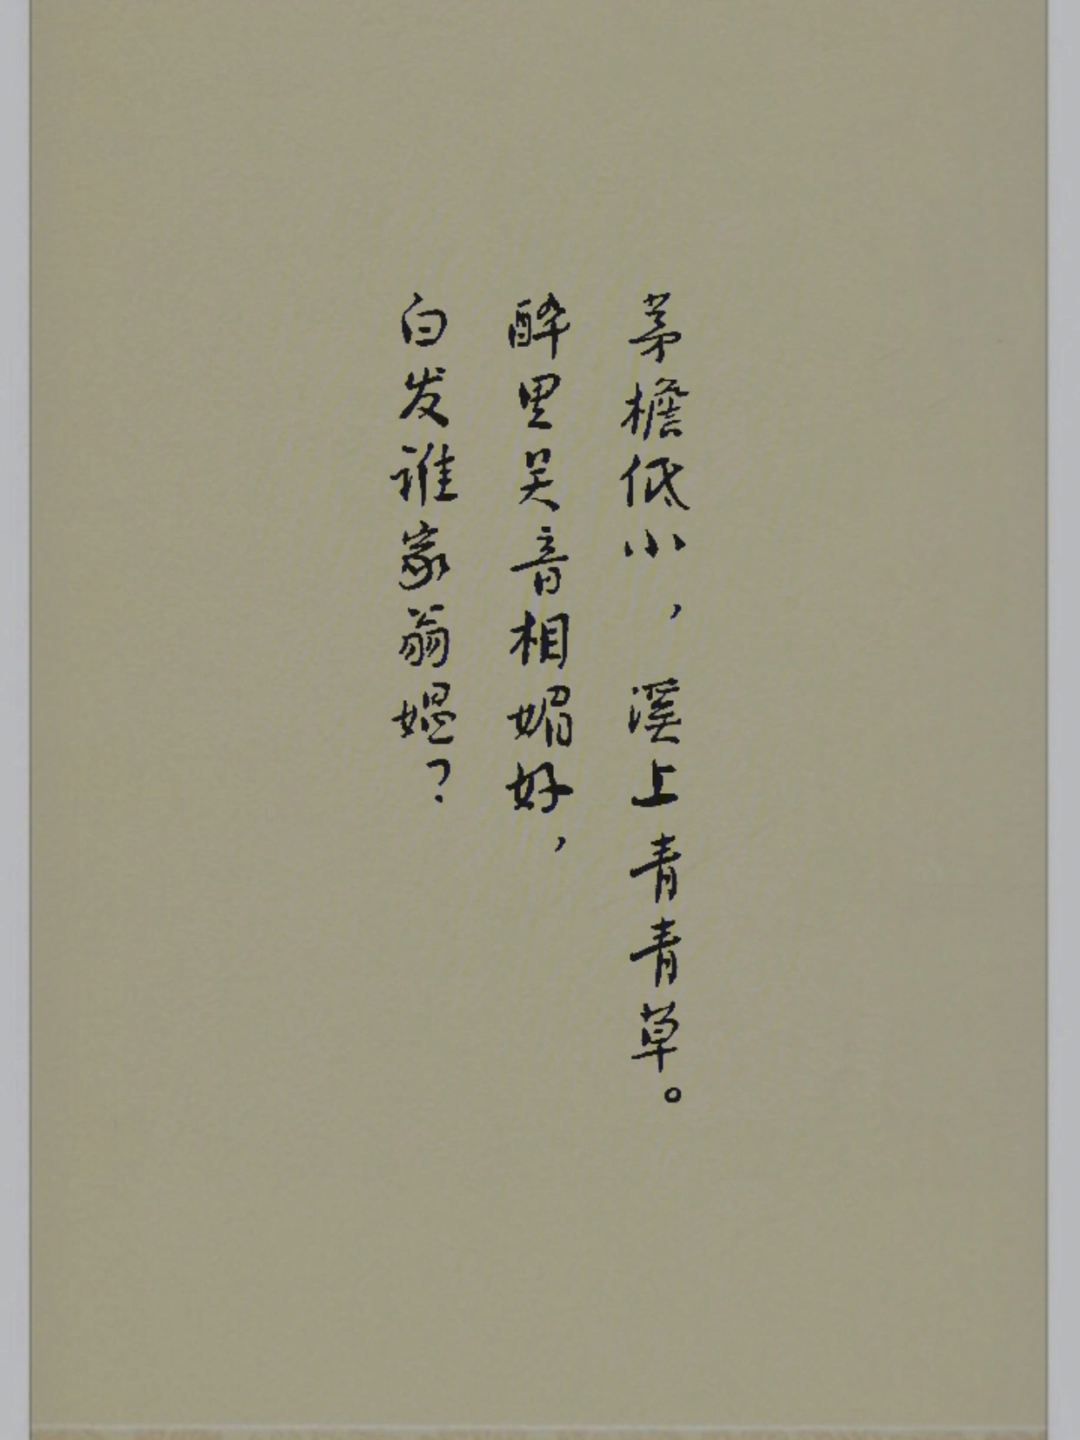 茅檐低小，溪上青青草。
醉里吴音相媚好，
白发谁家翁媪？